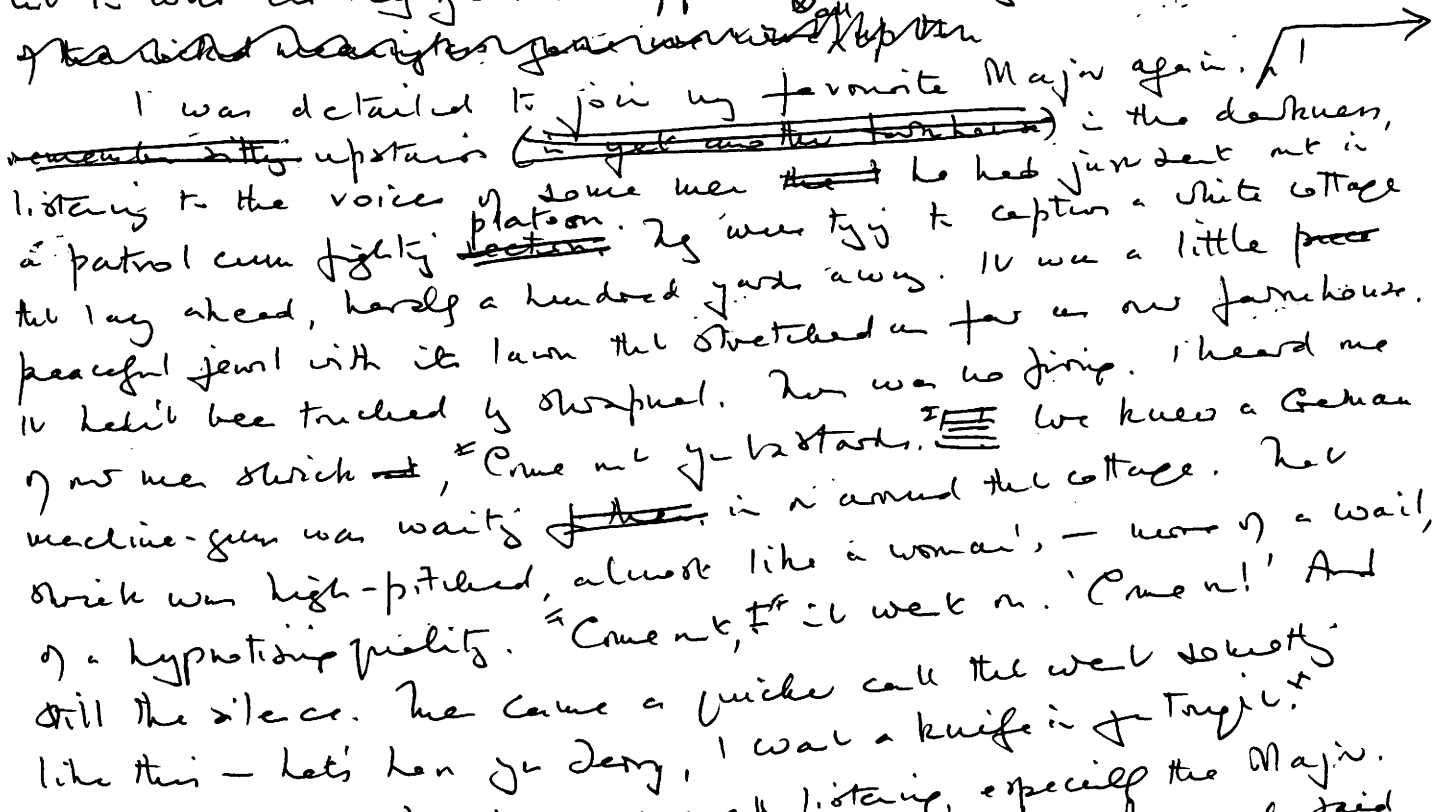 I was detailed to join my favourite Major again. I
remember sitting upstairs (in yet another farmhouse) in the darkness,
listening to the voices of some men he had just sent out in
a patrol cum fighting section. platoon. They were trying to capture a white cottage
that lay ahead, hardly a hundred yards away. It was a little
peaceful jewel with its lawn that stretched as far as our farmhouse.
It hadn't been touched by shrapnel. There was no firing. I heard one
of our men shriek, "Come out you bastards." We knew a German
machine-gun was waiting in or around that cottage. That
shriek was high-pitched, almost like a woman's, — more of a wail,
of a hypnotising quality. "Come out," it went on. 'Come on!' And
still the silence. Then came a quicker call that went something
like this — Let's have you Jerry, I want a knife in you Tonight."
listening, especially the Major.
said